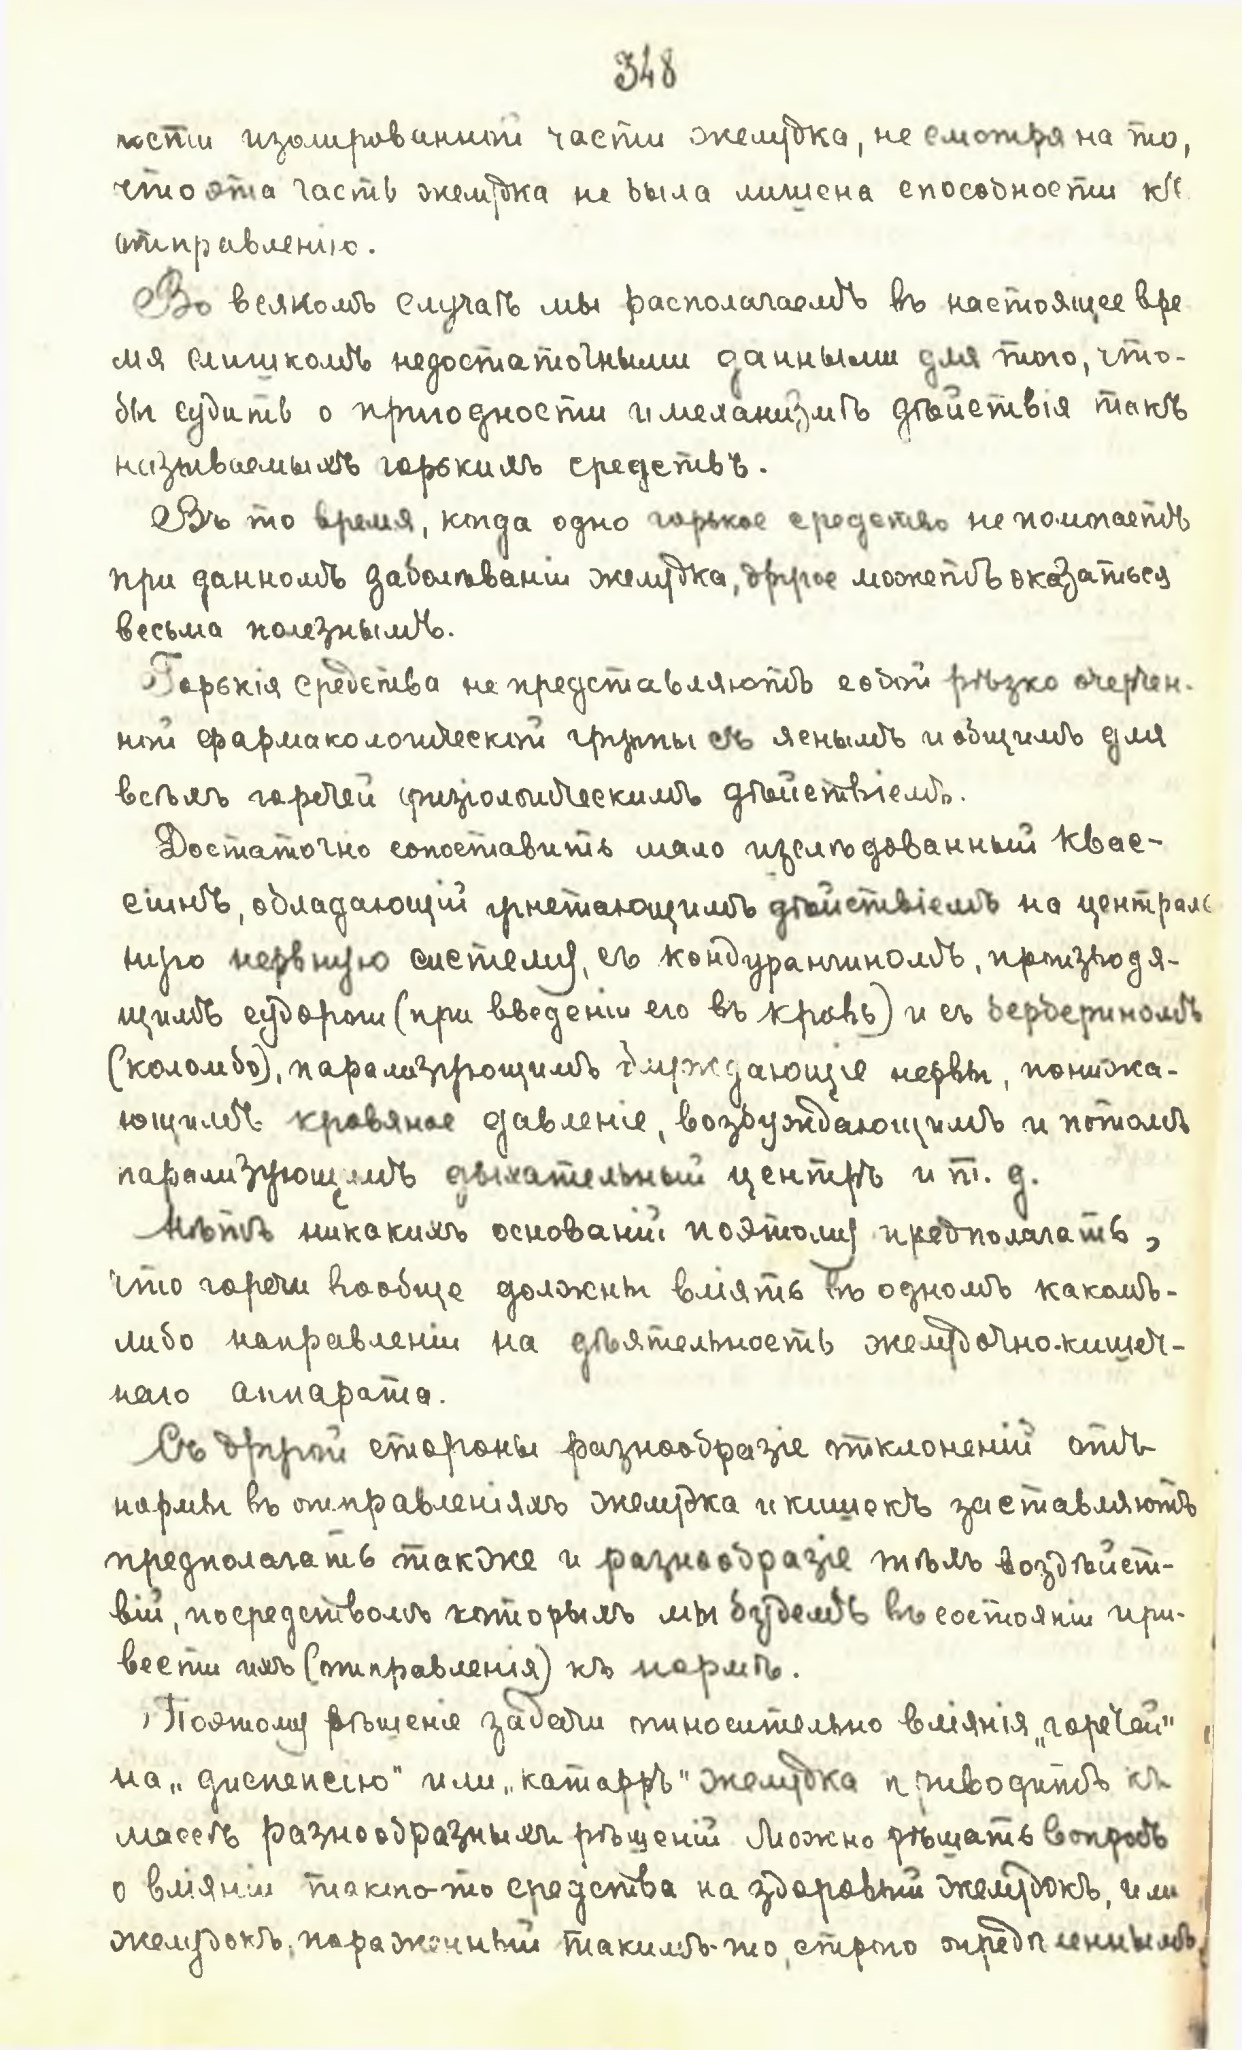 348
ности изолированной части желудка, не смотря на то,
что эта часть желудка не была лишена способности къ
отправленію.
Во всякомъ случаѣ мы располагаемъ въ настоящее вре
мя слишкомъ недостаточными данными для того, что-
бы судить о пригодности и механизмѣ дѣйствія такъ
называемыхъ горькихъ средствъ.
Въ то время, когда одно горькое средство не помогаетъ
при данномъ заболѣваніи желудка, другое можетъ оказаться
весьма полезнымъ.
Горькія средства не представляютъ собой рѣзко очерчен-
ной фармакологической группы съ яснымъ и общимъ для
всѣхъ горечей физіологическимъ дѣйствіемъ.
Достаточно сопоставить мало изслѣдованный квас-
сіинъ, обладающій угнетающимъ дѣйствіемъ на централь
ную нервную систему, съ кондурангиномъ, производя-
щимъ судороги (при введеніи его въ кровь) и съ берберином
(коломбо), парализующимъ блуждающіе нервы, понижа-
ющимъ кровяное давленіе, возбуждающимъ и потомъ
парализующимъ дыхательный центръ и т. д.
Нѣтъ никакихъ основаній поэтому предполагать,
что горечи вообще должны вліять въ одномъ какомъ-
либо направленіи на дѣятельность желудочно-кишеч-
наго аппарата.
Съ другой стороны разнообразіе отклоненій отъ
нормы въ отправленіяхъ желудка и кишекъ заставляютъ
предполагать также и разнообразіе тѣхъ воздѣйст-
вій, посредствомъ которыхъ мы будемъ въ состояніи при-
вести ихъ (отправленія) къ нормѣ.
Поэтому рѣшеніе задачи относительно вліянія „горечей"
на „диспепсію" или „катарръ" желудка приводитъ къ
массѣ разнообразныхъ рѣшеній Можно рѣшать вопросъ
о вліяніи такого-то средства на здоровый желудокъ, или
желудокъ, пораженный такимъ-то, строго опредѣленнымъ,